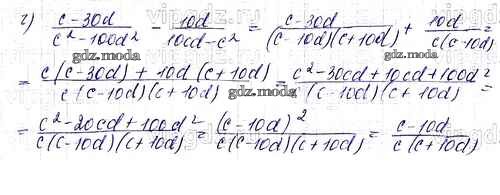 г) (c-30d)/(c²-100d²) - 10d/(10cd-c²) = (c-30d)/((c-10d)(c+10d)) + 10d/(c(c-10d)) =
= (c(c-30d) + 10d(c+10d))/(c(c-10d)(c+10d)) = (c²-30cd+10cd+100d²)/(c(c-10d)(c+10d)) =
= (c²-20cd+100d²)/(c(c-10d)(c+10d)) = (c-10d)²/(c(c-10d)(c+10d)) = (c-10d)/(c(c+10d))
gdz.moda
gdz.moda
gdz.moda
gdz.moda
gdz.moda